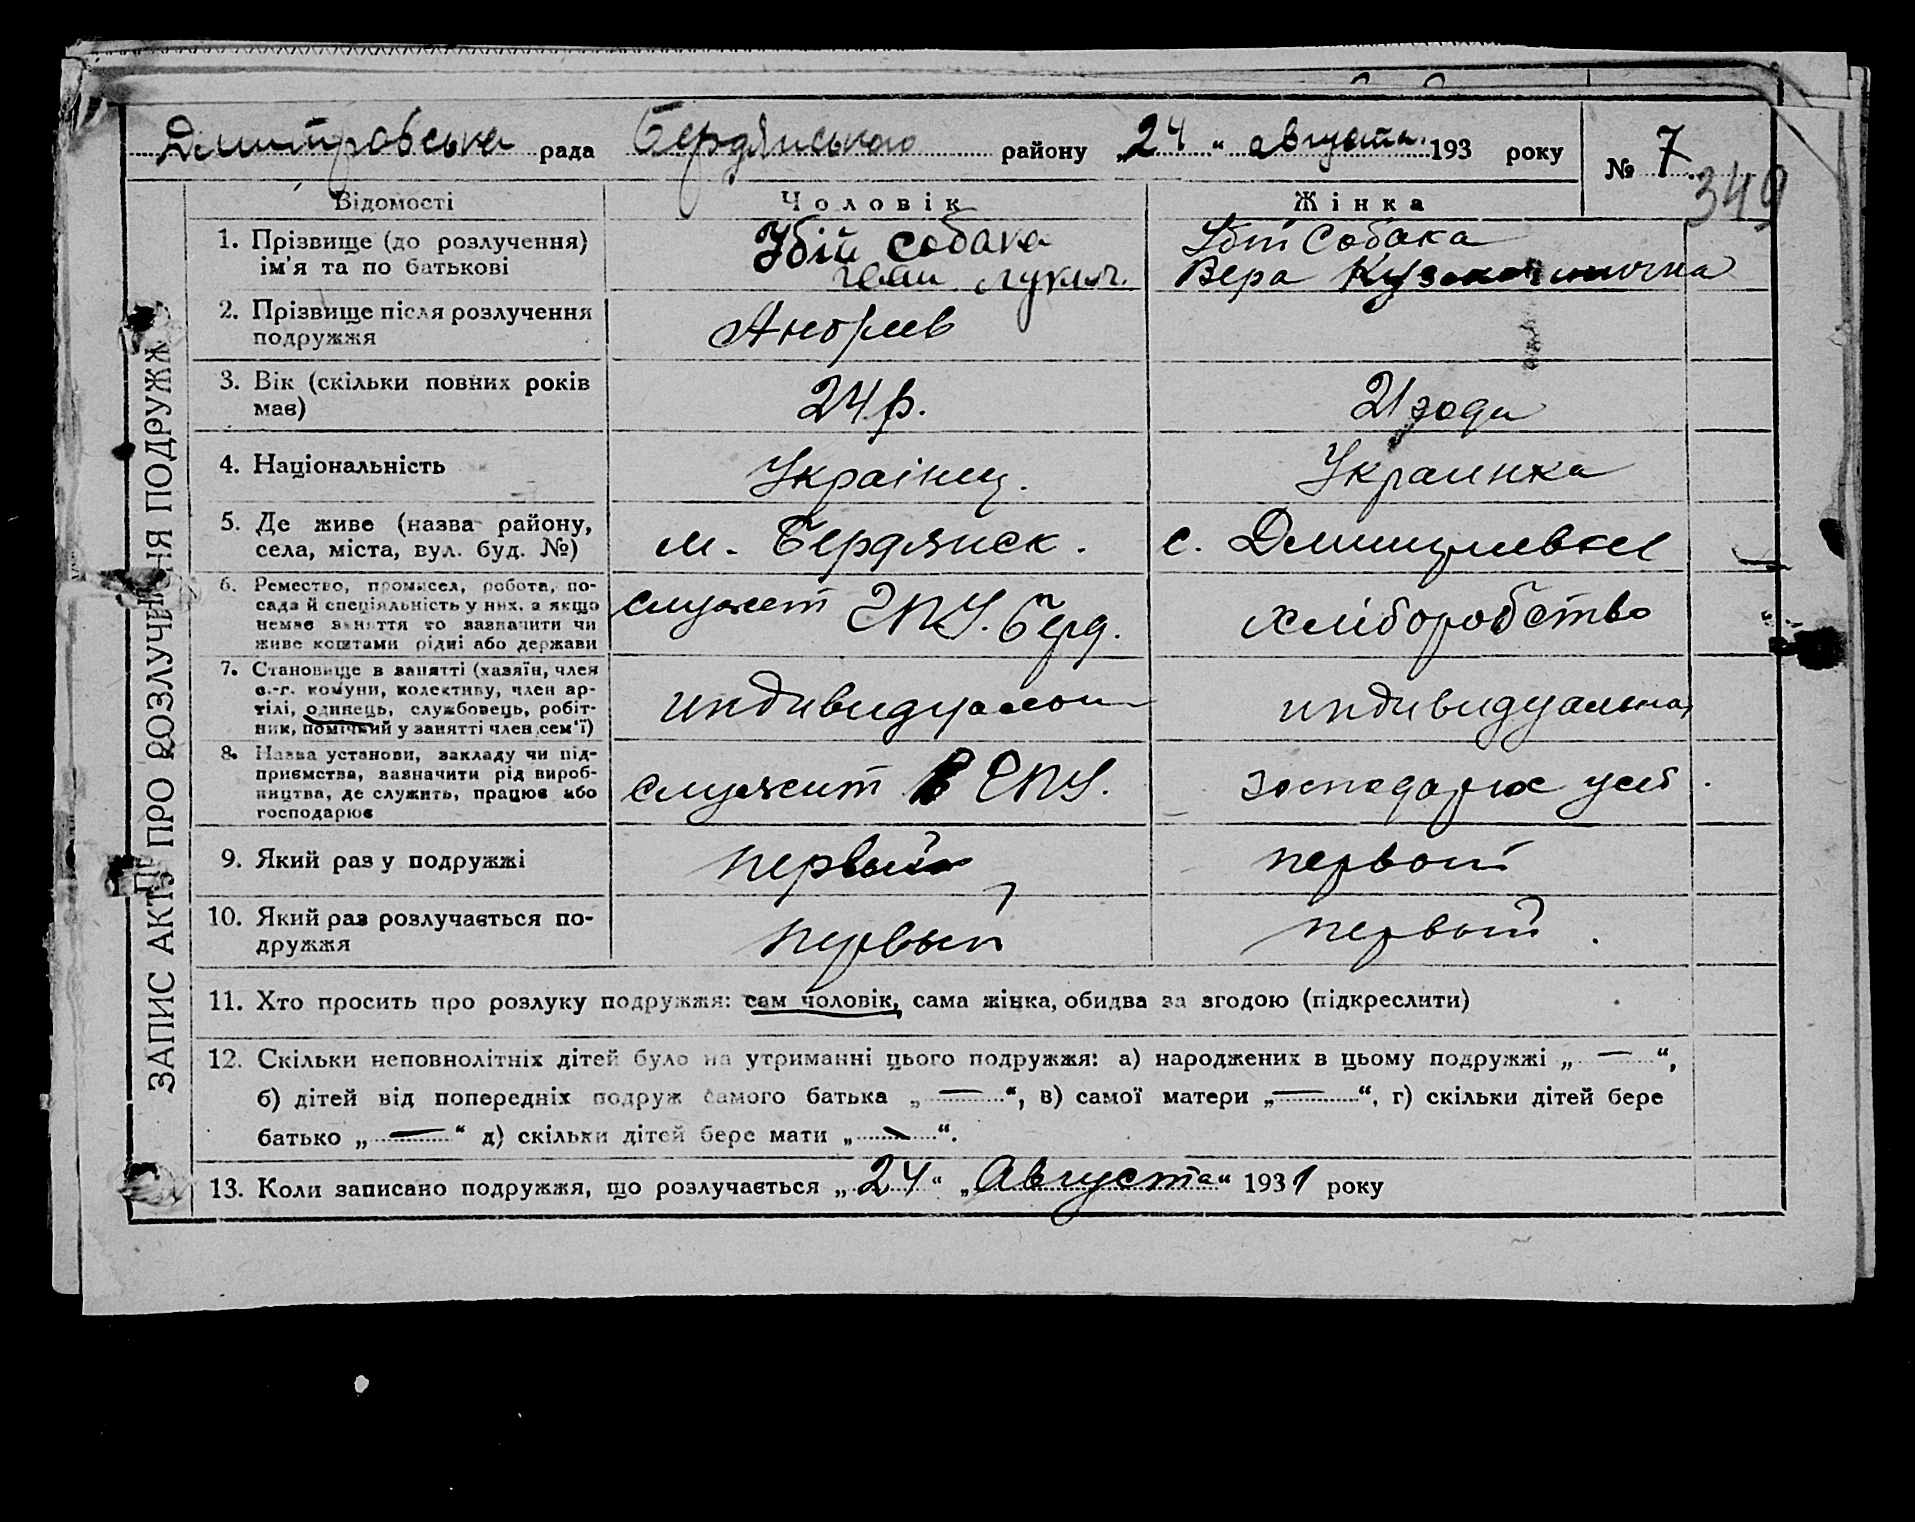 Дмитровська рада Бердянського району „24“ августа 193 року № 7
349
ЗАПИС АКТУ ПРО РОЗЛУЧЕННЯ ПОДРУЖЖЯ
Відомості Чоловік Жінка
1. Прізвище (до розлучення) ім'я та по батькові
Убій собака
Убій Собака
Вера
2. Прізвище після розлучення подружжя
3. Вік (скільки повних років має)
24 р.
21 года
4. Національність
Українец.
Украинка
5. Де живе (назва району, села, міста, вул. буд. №)
м. Бердянск.
с. Дмитриевка
6. Ремество, промисел, робота, по-
сада й спеціяльність у них, а якщо
немає заняття то зазначити чи
живе коштами рідні або держави
служет ГПУ. Берд.
хліборобство
7. Становище в занятті (хазяїн, член
с.-г. комуни, колективу, член ар-
тілі, одинець, службовець, робіт-
ник, помічний у занятті член сем'ї)
индивидуальна
8. Назва установи, закладу чи під-
приємства, зазначити рід вироб-
ництва, де служить, працює або
господарює
служит в ГПУ.
9. Який раз у подружжі
первый
первой
10. Який раз розлучається по-
дружжя
первый
первой.
11. Хто просить про розлуку подружжя: сам чоловік, сама жінка, обидва за згодою (підкреслити)
12. Скільки неповнолітніх дітей було на утриманні цього подружжя: а) народжених в цьому подружжі „ — “,
б) дітей від попередніх подруж самого батька „ — “, в) самої матери „ — “, г) скільки дітей бере
батько „ — “ д) скільки дітей бере мати „ — “.
13. Коли записано подружжя, що розлучається „24“ „Августа“ 1931 року